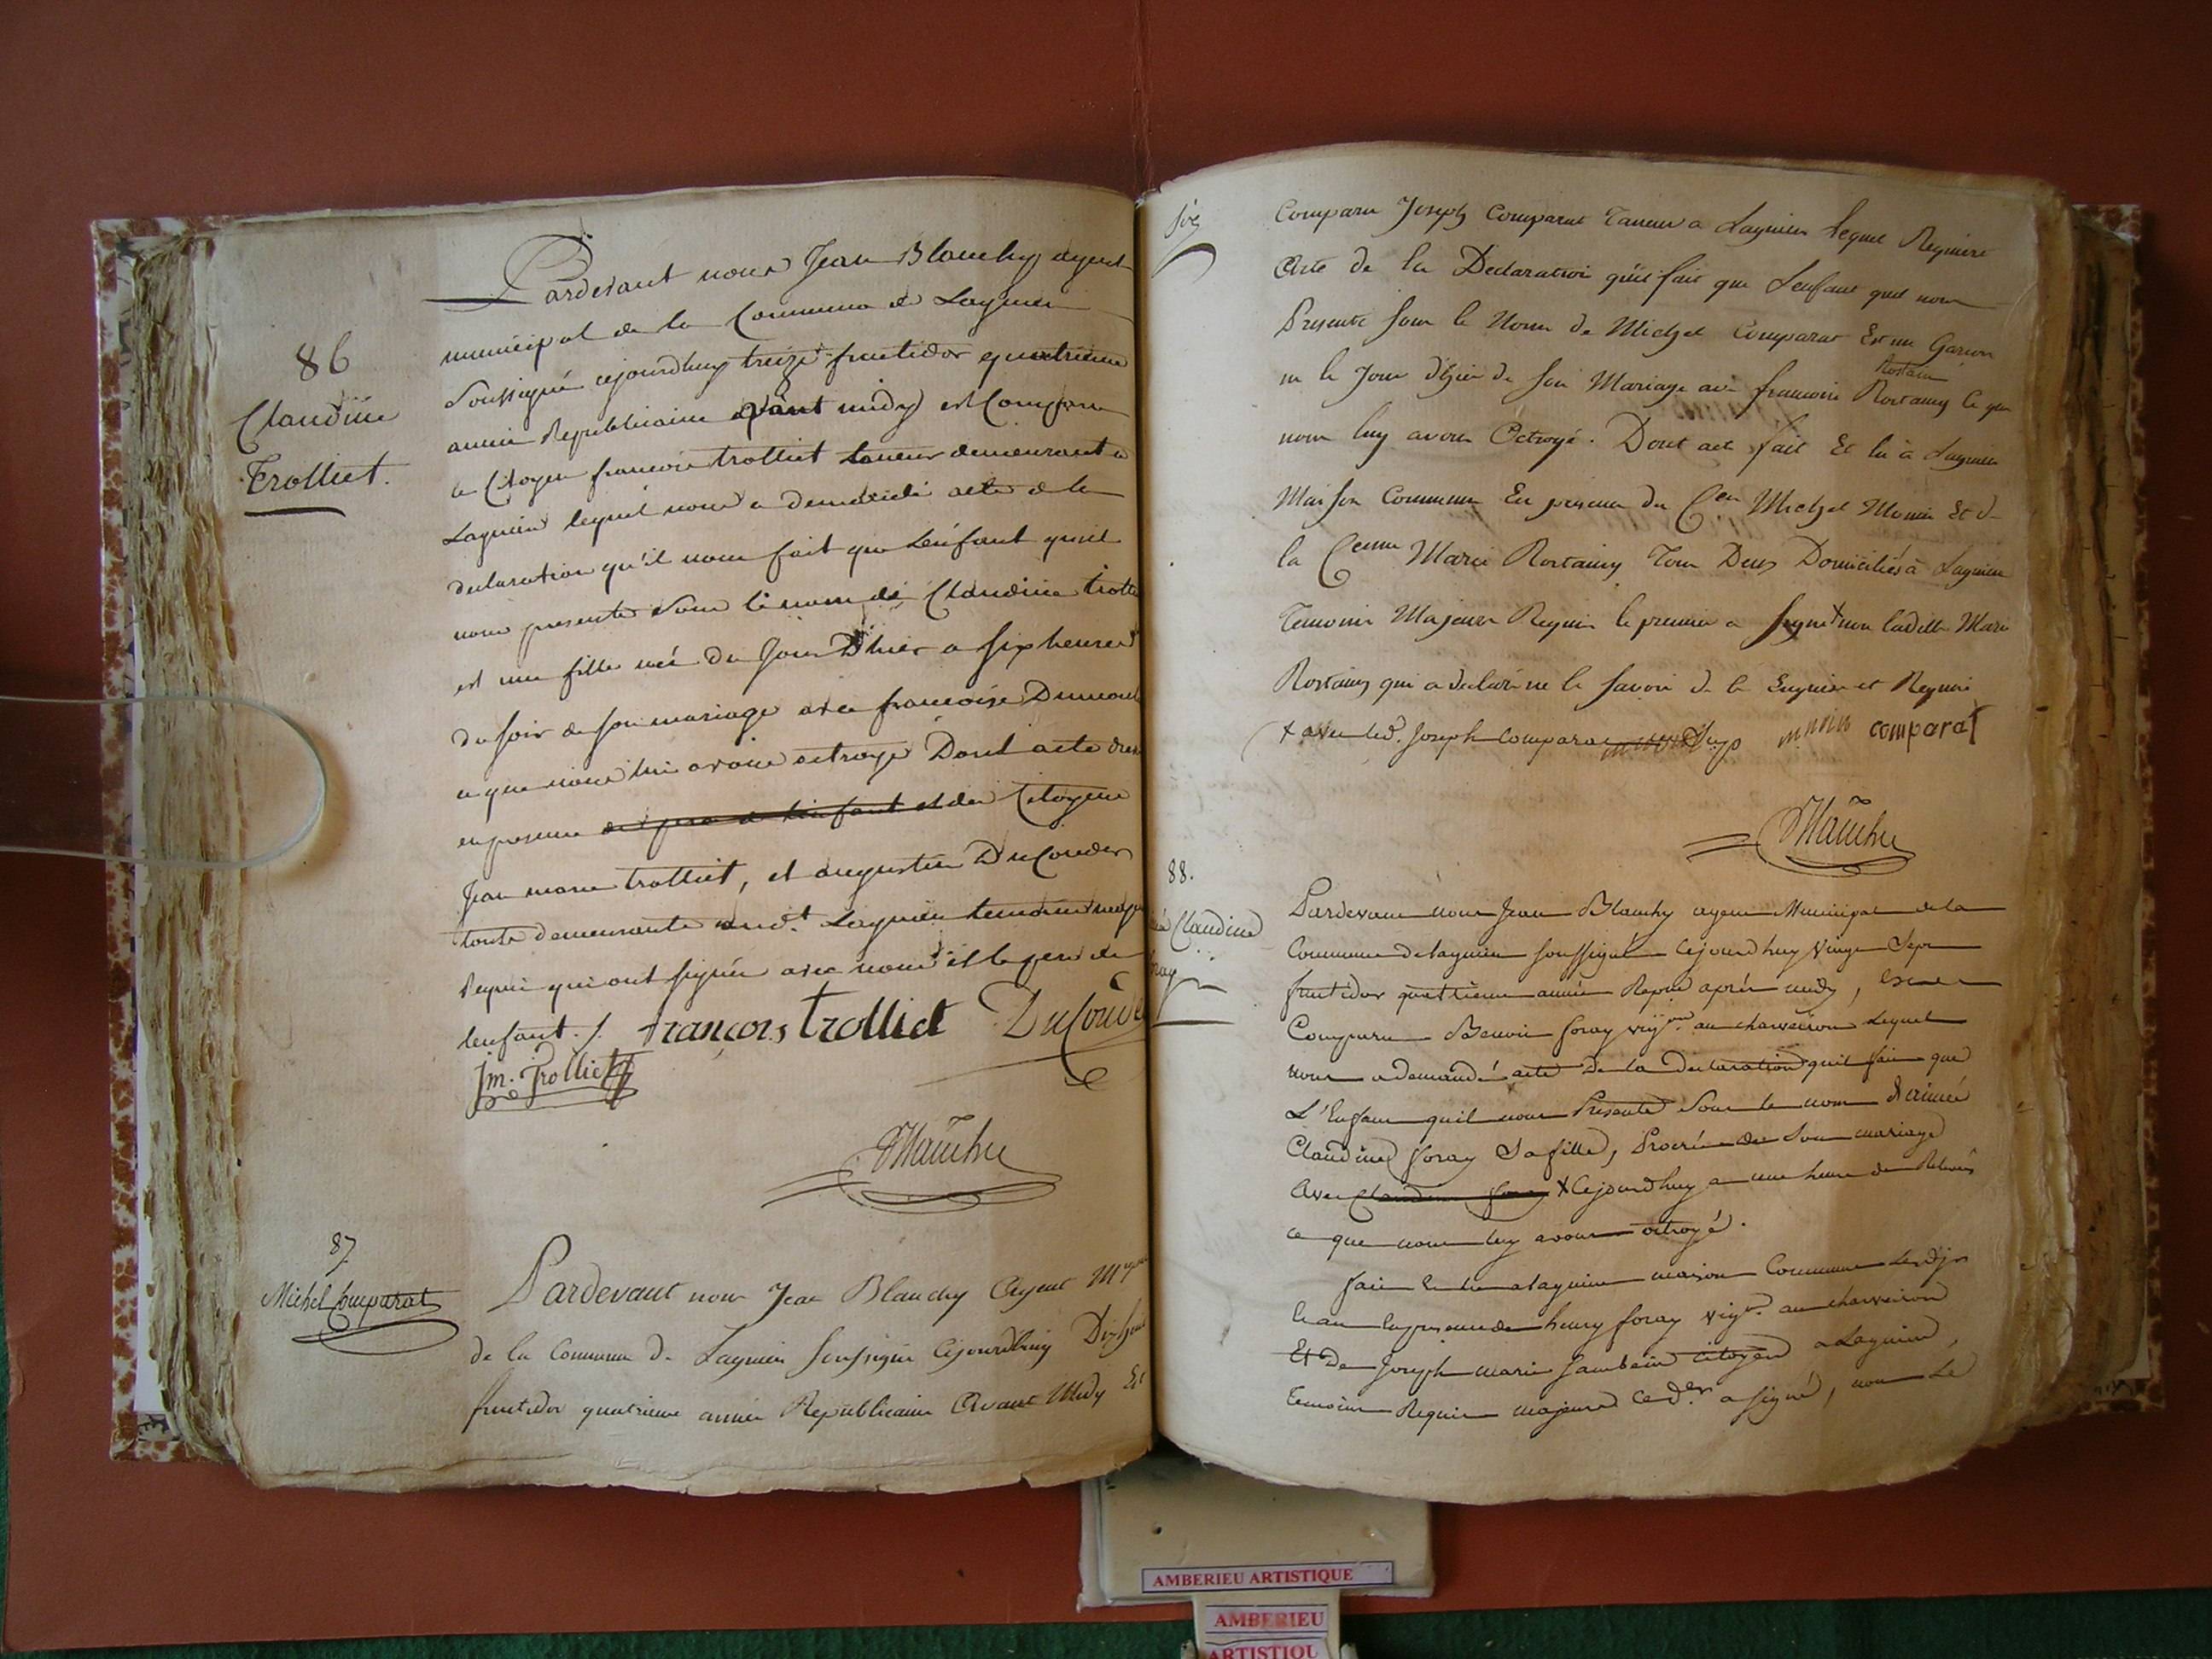 86
Claudine
Trolliet.
Pardevant nous Jean Blanchy agent
municipal de la Commune de Lagnieu
Soussigné cejourdhuy treize fructidor quatrieme
année Republicaine avant midy est Comparu
le Citoyen francois trolliet taneur demeurant a
Lagnieu lequel nous a demandé acte de la
declaration qu'il nous fait que L'enfant qu'il
nous presente sous le nom de Claudine trolliet
est une fille née du Jour D'hier a six heures
du soir de son mariage avec francoise Dumont
ce que nous lui avons octroyé Dont acte
en presence des Citoyens
Jean marie trolliet, et augustin DuCouder
touts demeurants aud.t Lagnieu temoins
Requis qui ont signés avec nous et le pere de
lenfant ./. francois trolliet DuCoude
jm. Trolliet
Blanchy
87
Michel Comparat
Pardevant nous Jean Blanchy Agent
de la Commune de Lagnieu Soussigné Cejourdhuy
fructidor quatrieme année Republicaine Avant Midy Est
Comparu Joseph Comparat Taneur a Lagnieu Lequel Requiere
Acte de la Declaration qu'il fait que L'enfant quil nous
Presente sous le Nom de Michel Comparat Est un Garcon
né le Jour d'hier de son Mariage avec francoise Rostaing Ce que
Rostain
nous luy avons Octroyé. Dont acte fait Et lu à Lagnieu
Maison Commune En presence du Cen Michel Monin Et de
la Cenne Marie Rostaing Tous Deux Domiciliés à Lagnieu
Temoins Majeurs Requis le premier a signé + non laditte Marie
Rostaing qui a declaré ne le savoir de ce Enquise et Requise
+ avec led. Joseph Comparat monin comparat
Blanchy
88.
Claudine
foray
Pardevant nous Jean Blanchy agent Municipal de la
Commune de Lagnieu soussigné Cejourdhuy Vingt Sept
fructidor quattrieme année Repne après midy, est
Comparu Benoit foray vigon au charveiron Lequel
nous a demandé acte De la Declaration quil fait que
L'Enfant quil nous Presente Sous le nom d'aimée
Claudine foray Sa fille, Procréée de Son mariage
Avec Claudine foray + Cejourdhuy a une heure de Relevée
ce que nous luy avons octroyé.
fait Et lu a Lagnieu maison Commune Lesd. Jrs
Et an En presence de henry foray vign. au charveiron
Et De Joseph marie Jambein Citoyen a Lagnieu,
temoins Requis majeurs Ce der. a signé, non Le
AMBERIEU ARTISTIQUE
AMBERIEU
ARTISTIQU